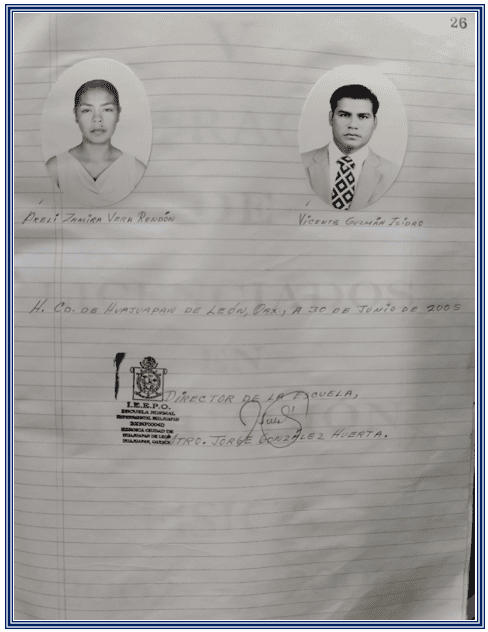 26
Areli Zamira Vera Rendón
Vicente Guzmán Isidro
H. CD. DE HUAJUAPAN DE LEÓN, OAX., A 30 DE JUNIO DE 2005
DIRECTOR DE LA ESCUELA,
I.E.E.P.O.
ESCUELA NORMAL
EXPERIMENTAL HUAJUAPAN
HEROICA CIUDAD DE
HUAJUAPAN DE LEÓN
HUAJUAPAN, OAXACA
MTRO. JORGE GONZÁLEZ HUERTA.